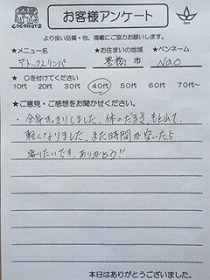 COCONUTS
お客様アンケート
より良い品質・他、掲載にご協力お願いします。
★メニュー名 ★お住まいの地域 ★ペンネーム
デトックスリンパ 豊橋市 Nao
★○を付けてください
10代 20代 30代 40代 50代 60代 70代～
★ご意見・ご感想をお聞かせください。
・全身すっきりしました。体のだるさ、もとれて
軽くなりました。また時間が空いたら
来りたいです。ありがとう!!
本日はありがとうございました。